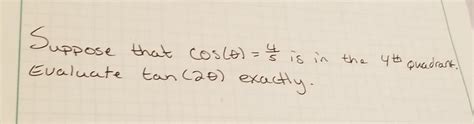 Suppose that cos(θ) = 4/5 is in the 4th quadrant.
Evaluate tan(2θ) exactly.